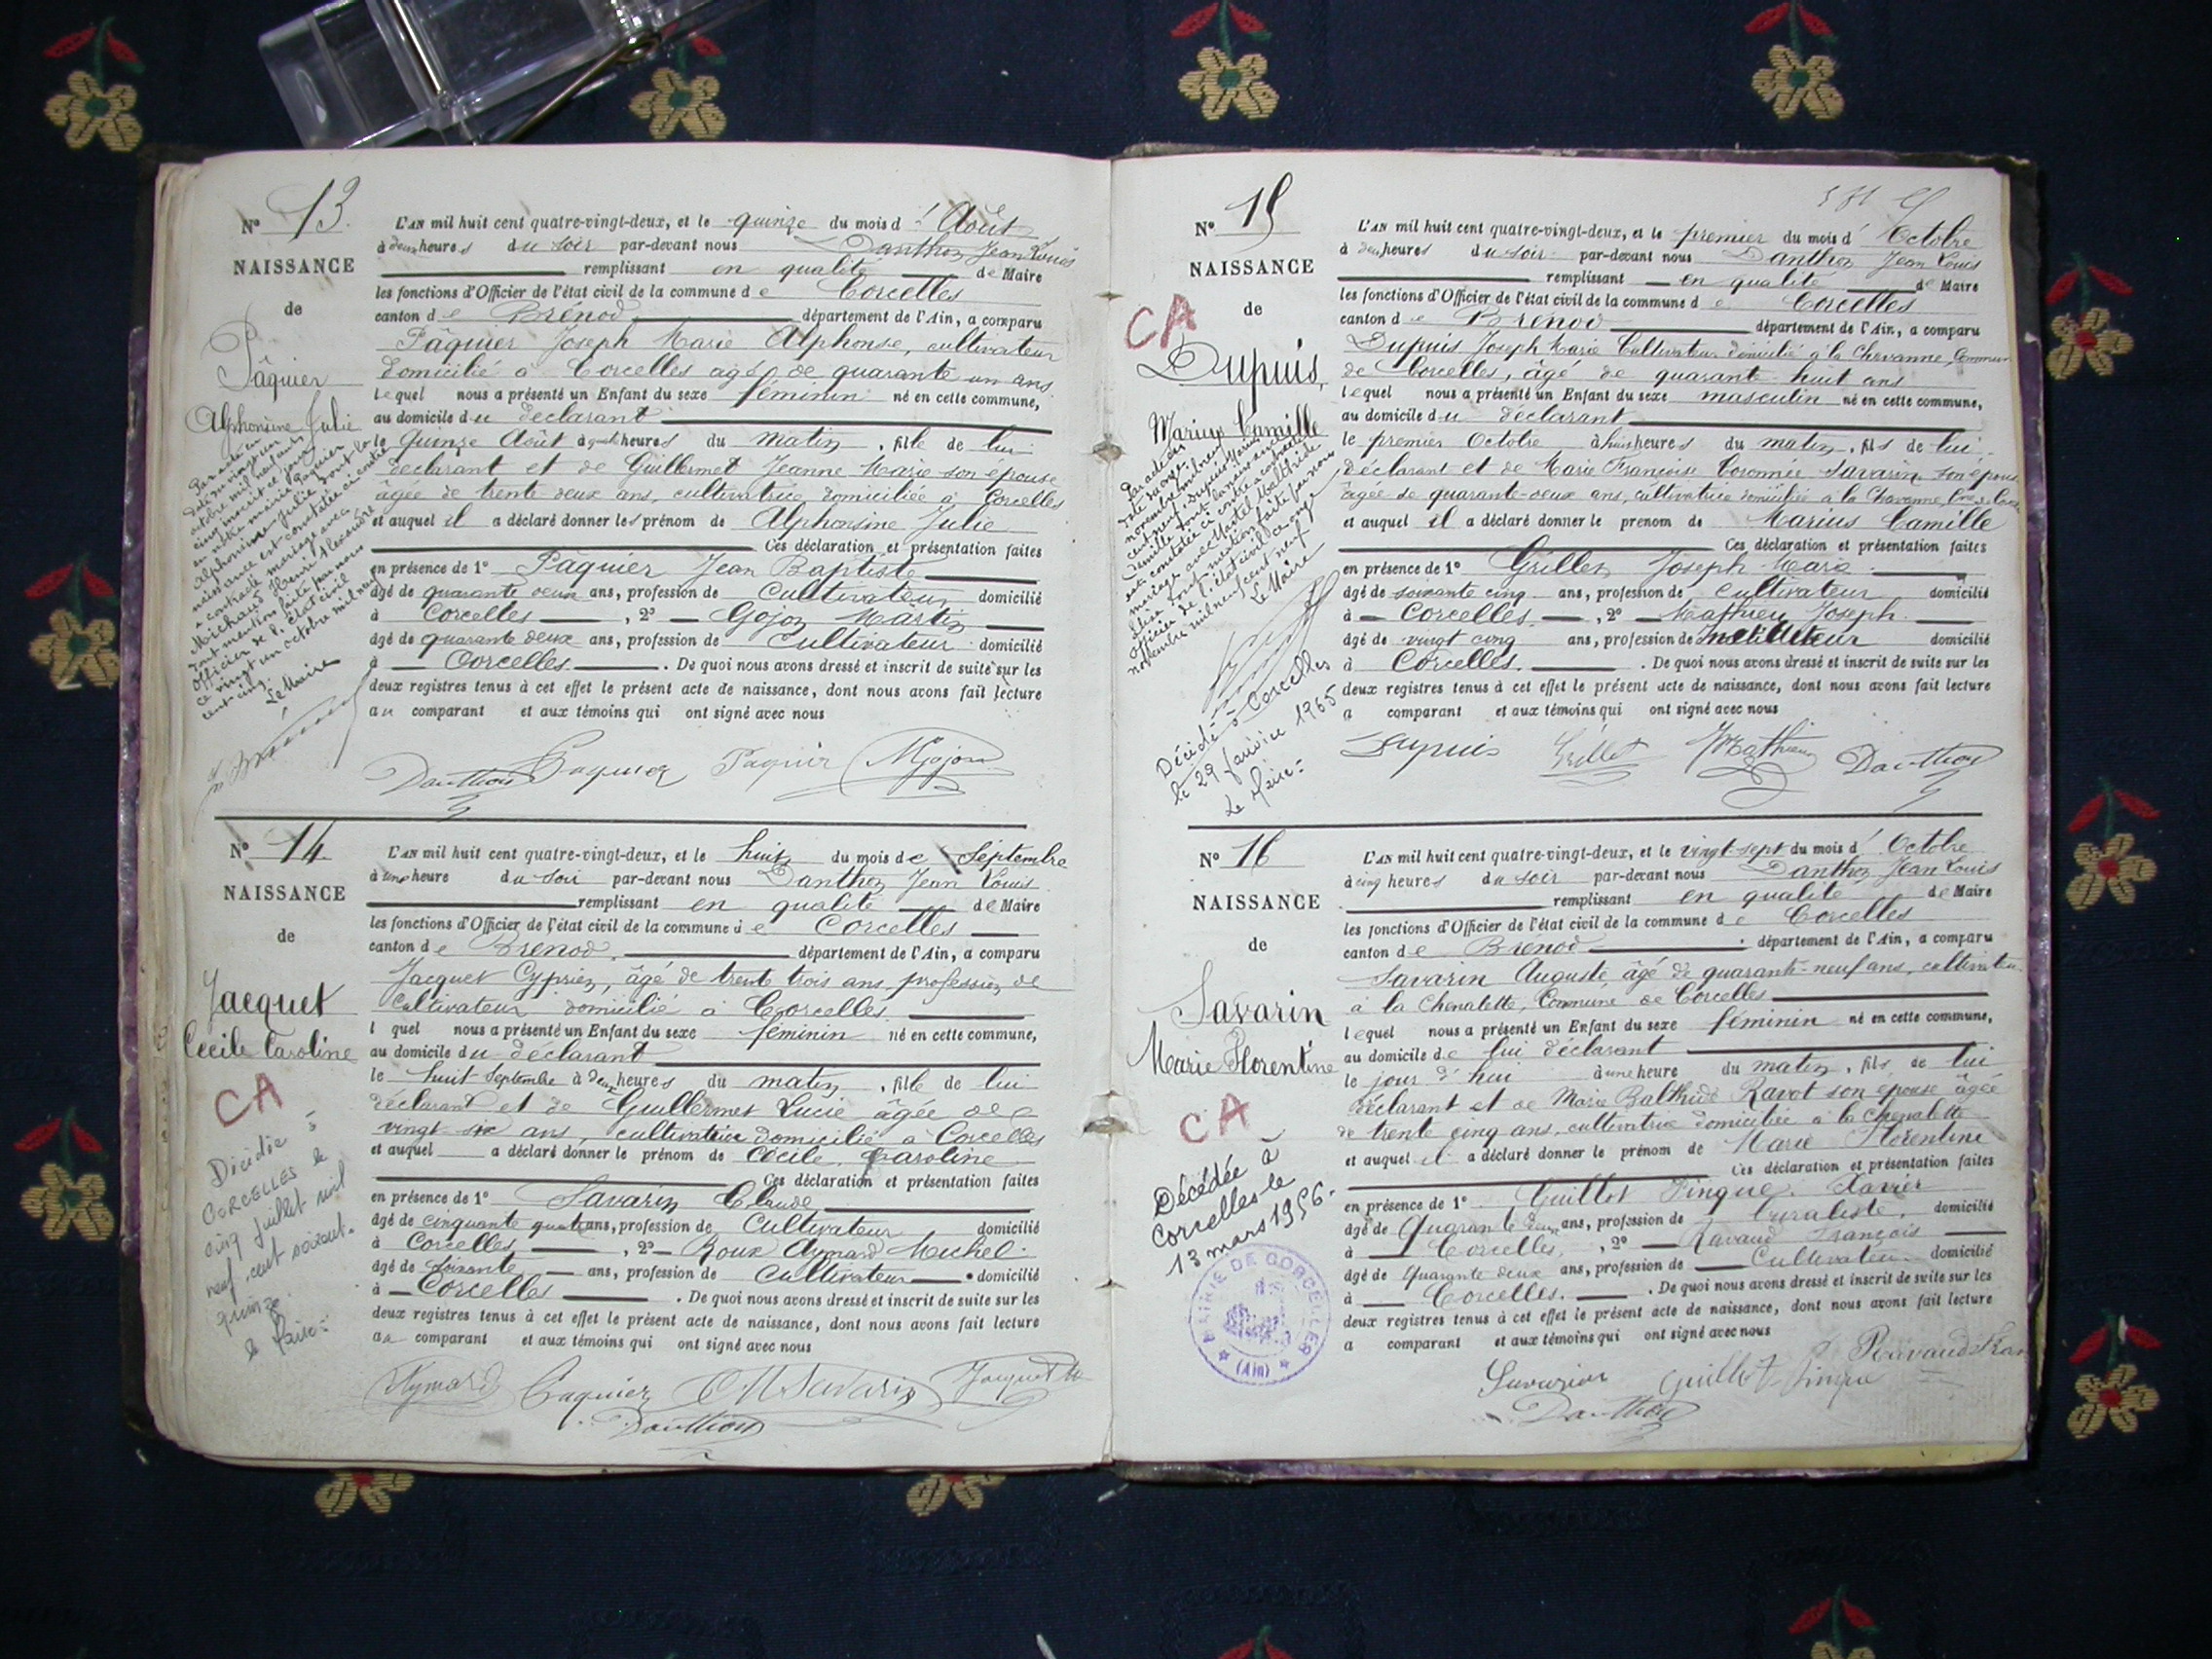 N° 13
NAISSANCE
de
Pâquier
Alphonsine Julie
Par acte en
date du vingt un
octobre mil neuf cent
cinq inscrit ce jour
en notre mairie Paquier
Alphonsine Julie dont la
naissance est constatée ci-contre
a contracté mariage avec
Michaud Henri Alexandre
dont mention faite par nous
Officier de l'état civil
ce vingt un octobre mil neuf
cent cinq.
Le Maire
L'AN mil huit cent quatre-vingt-deux, et le quinze du mois d' Août
à deux heures du soir par-devant nous Danthon Jean Louis
remplissant en qualité de Maire
les fonctions d'Officier de l'état civil de la commune de Corcelles
canton de Brénod département de l'Ain, a comparu
Pâquier Joseph Marie Alphonse, cultivateur
domicilié à Corcelles agé de quarante un ans
lequel nous a présenté un Enfant du sexe féminin né en cette commune,
au domicile du déclarant
le quinze Août à heures du matin, fille de lui
déclarant et de Guillermet Jeanne Marie son épouse
âgée de trente deux ans, cultivatrice domiciliée à Corcelles
et auquel il a déclaré donner les prénom de Alphonsine Julie
Ces déclaration et présentation faites
en présence de 1° Pâquier Jean Baptiste
âgé de quarante deux ans, profession de Cultivateur domicilié
à Corcelles, 2° Gojon Martin
âgé de quarante deux ans, profession de Cultivateur domicilié
à Corcelles. De quoi nous avons dressé et inscrit de suite sur les
deux registres tenus à cet effet le présent acte de naissance, dont nous avons fait lecture
au comparant et aux témoins qui ont signé avec nous
Danthon Paquier Paquier MGojon
N° 14
NAISSANCE
de
Jacquet
Cécile Caroline
CA
Décédée à
CORCELLES le
cinq juillet mil
neuf cent soixante
quinze.
le Maire:
L'AN mil huit cent quatre-vingt-deux, et le huit du mois de Septembre
à une heure du soir par-devant nous Danthon Jean Louis
remplissant en qualité de Maire
les fonctions d'Officier de l'état civil de la commune de Corcelles
canton de Brenod département de l'Ain, a comparu
Jacquet Cyprien, âgé de trente trois ans, profession de
Cultivateur domicilié à Corcelles
l quel nous a présenté un Enfant du sexe féminin né en cette commune,
au domicile du déclarant
le huit Septembre à deux heures du matin, fille de lui
déclarant et de Guillermet Lucie âgée de
vingt six ans, cultivatrice domicilié à Corcelles
et auquel a déclaré donner le prénom de Cécile Caroline
Ces déclaration et présentation faites
en présence de 1° Savarin Claude
âgé de cinquante quatre ans, profession de Cultivateur domicilié
à Corcelles, 2° Roux Aymard Michel
âgé de soixante ans, profession de Cultivateur domicilié
à Corcelles. De quoi nous avons dressé et inscrit de suite sur les
deux registres tenus à cet effet le présent acte de naissance, dont nous avons fait lecture
au comparant et aux témoins qui ont signé avec nous
Aymard Paquier Savarin Jacquet
Danthon
N° 15
NAISSANCE
de
CA
Dupuis,
Marius Camille
Par acte en
date du onze
novembre mil neuf
cent neuf Dupuis Marius
Camille dont la naissance
est constatée ci contre a contracté
mariage avec Balthilde
dont mention faite par nous
Officier de l'état civil ce onze
novembre mil neuf cent neuf
Le Maire
Décédé à Corcelles
le 29 janvier 1965
Le Maire:
L'AN mil huit cent quatre-vingt-deux, et le premier du mois d' Octobre
à deux heures du soir par-devant nous Danthon Jean Louis
remplissant en qualité de Maire
les fonctions d'Officier de l'état civil de la commune de Corcelles
canton de Brénod département de l'Ain, a comparu
Dupuis Joseph Marie Cultivateur domicilié à la Chavanne, Commune
de Corcelles, âgé de quarante-huit ans
lequel nous a présenté un Enfant du sexe masculin né en cette commune,
au domicile du déclarant
le premier Octobre à huit heures du matin, fils de lui
déclarant et de Marie Françoise Savarin son épouse
âgée de quarante-deux ans, cultivatrice domiciliée à la Chavanne,
et auquel il a déclaré donner le prenom de Marius Camille
Ces déclaration et présentation faites
en présence de 1° Grillet Joseph Marie
âgé de soixante cinq ans, profession de Cultivateur domicilié
à Corcelles, 2° Mathieu Joseph
âgé de vingt cinq ans, profession de Instituteur domicilié
à Corcelles. De quoi nous avons dressé et inscrit de suite sur les
deux registres tenus à cet effet le présent acte de naissance, dont nous avons fait lecture
a comparant et aux témoins qui ont signé avec nous
Dupuis Grillet JMathieu Danthon
N° 16
NAISSANCE
de
Savarin
Marie Florentine
CA
Décédée à
Corcelles le
13 mars 1956.
MAIRIE DE CORCELLES
(Ain)
L'AN mil huit cent quatre-vingt-deux, et le vingt-sept du mois d' Octobre
à cinq heures du soir par-devant nous Danthon Jean Louis
remplissant en qualité de Maire
les fonctions d'Officier de l'état civil de la commune de Corcelles
canton de Brenod département de l'Ain, a comparu
Savarin Auguste, âgé de quarante-neuf ans, cultivateur
à la Chenalette, Commune de Corcelles
lequel nous a présenté un Enfant du sexe féminin né en cette commune,
au domicile de lui déclarant
le jour d'hui à une heure du matin, fils de lui
déclarant et de Marie Balthide Ravot son épouse âgée
de trente cinq ans, cultivatrice domiciliée à la Chenalette
et auquel il a déclaré donner le prénom de Marie Florentine
Ces déclaration et présentation faites
en présence de 1° Guillot Pingue Xavier
âgé de Quarante deux ans, profession de buraliste, domicilié
à Corcelles, 2° Ravaud François
âgé de Quarante deux ans, profession de Cultivateur domicilié
à Corcelles. De quoi nous avons dressé et inscrit de suite sur les
deux registres tenus à cet effet le présent acte de naissance, dont nous avons fait lecture
a comparant et aux témoins qui ont signé avec nous
Savarin Guillot Pingue Ravaud
Danthon